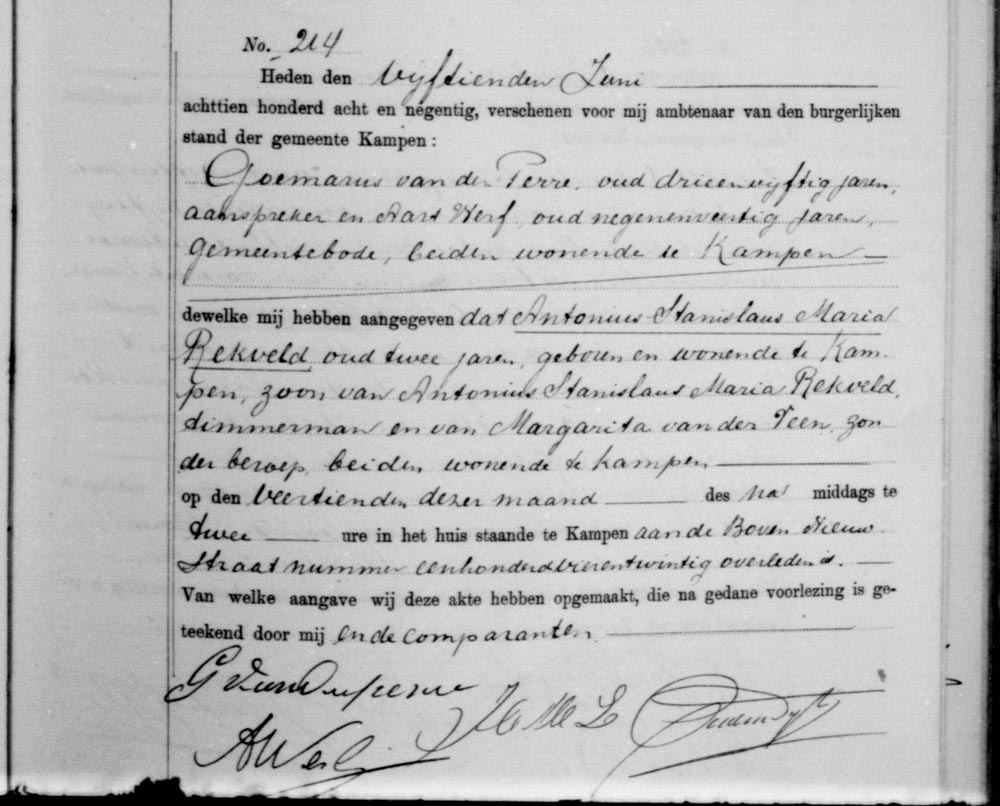 No. 214
Heden den Vijftienden Juni
achttien honderd acht en negentig, verschenen voor mij ambtenaar van den burgerlijken
stand der gemeente Kampen:
Goemarus van der Perre, oud drieenvijftig jaren,
aanspreker en Aart Werf, oud negenenveertig jaren,
gemeentebode, beiden wonende te Kampen
dewelke mij hebben aangegeven dat Antonius Stanislaus Maria
Rekveld, oud twee jaren, geboren en wonende te Kam-
pen, zoon van Antonius Stanislaus Maria Rekveld,
timmerman en van Margarita van der Veen, zon
der beroep, beiden wonende te Kampen
op den Veertienden dezer maand des na middags te
twee ure in het huis staande te Kampen aan de Boven Nieuw
Straat nummer eenhonderdvierentwintig overleden is.
Van welke aangave wij deze akte hebben opgemaakt, die na gedane voorlezing is ge-
teekend door mij en de comparanten.
G van der Perre
A Werf